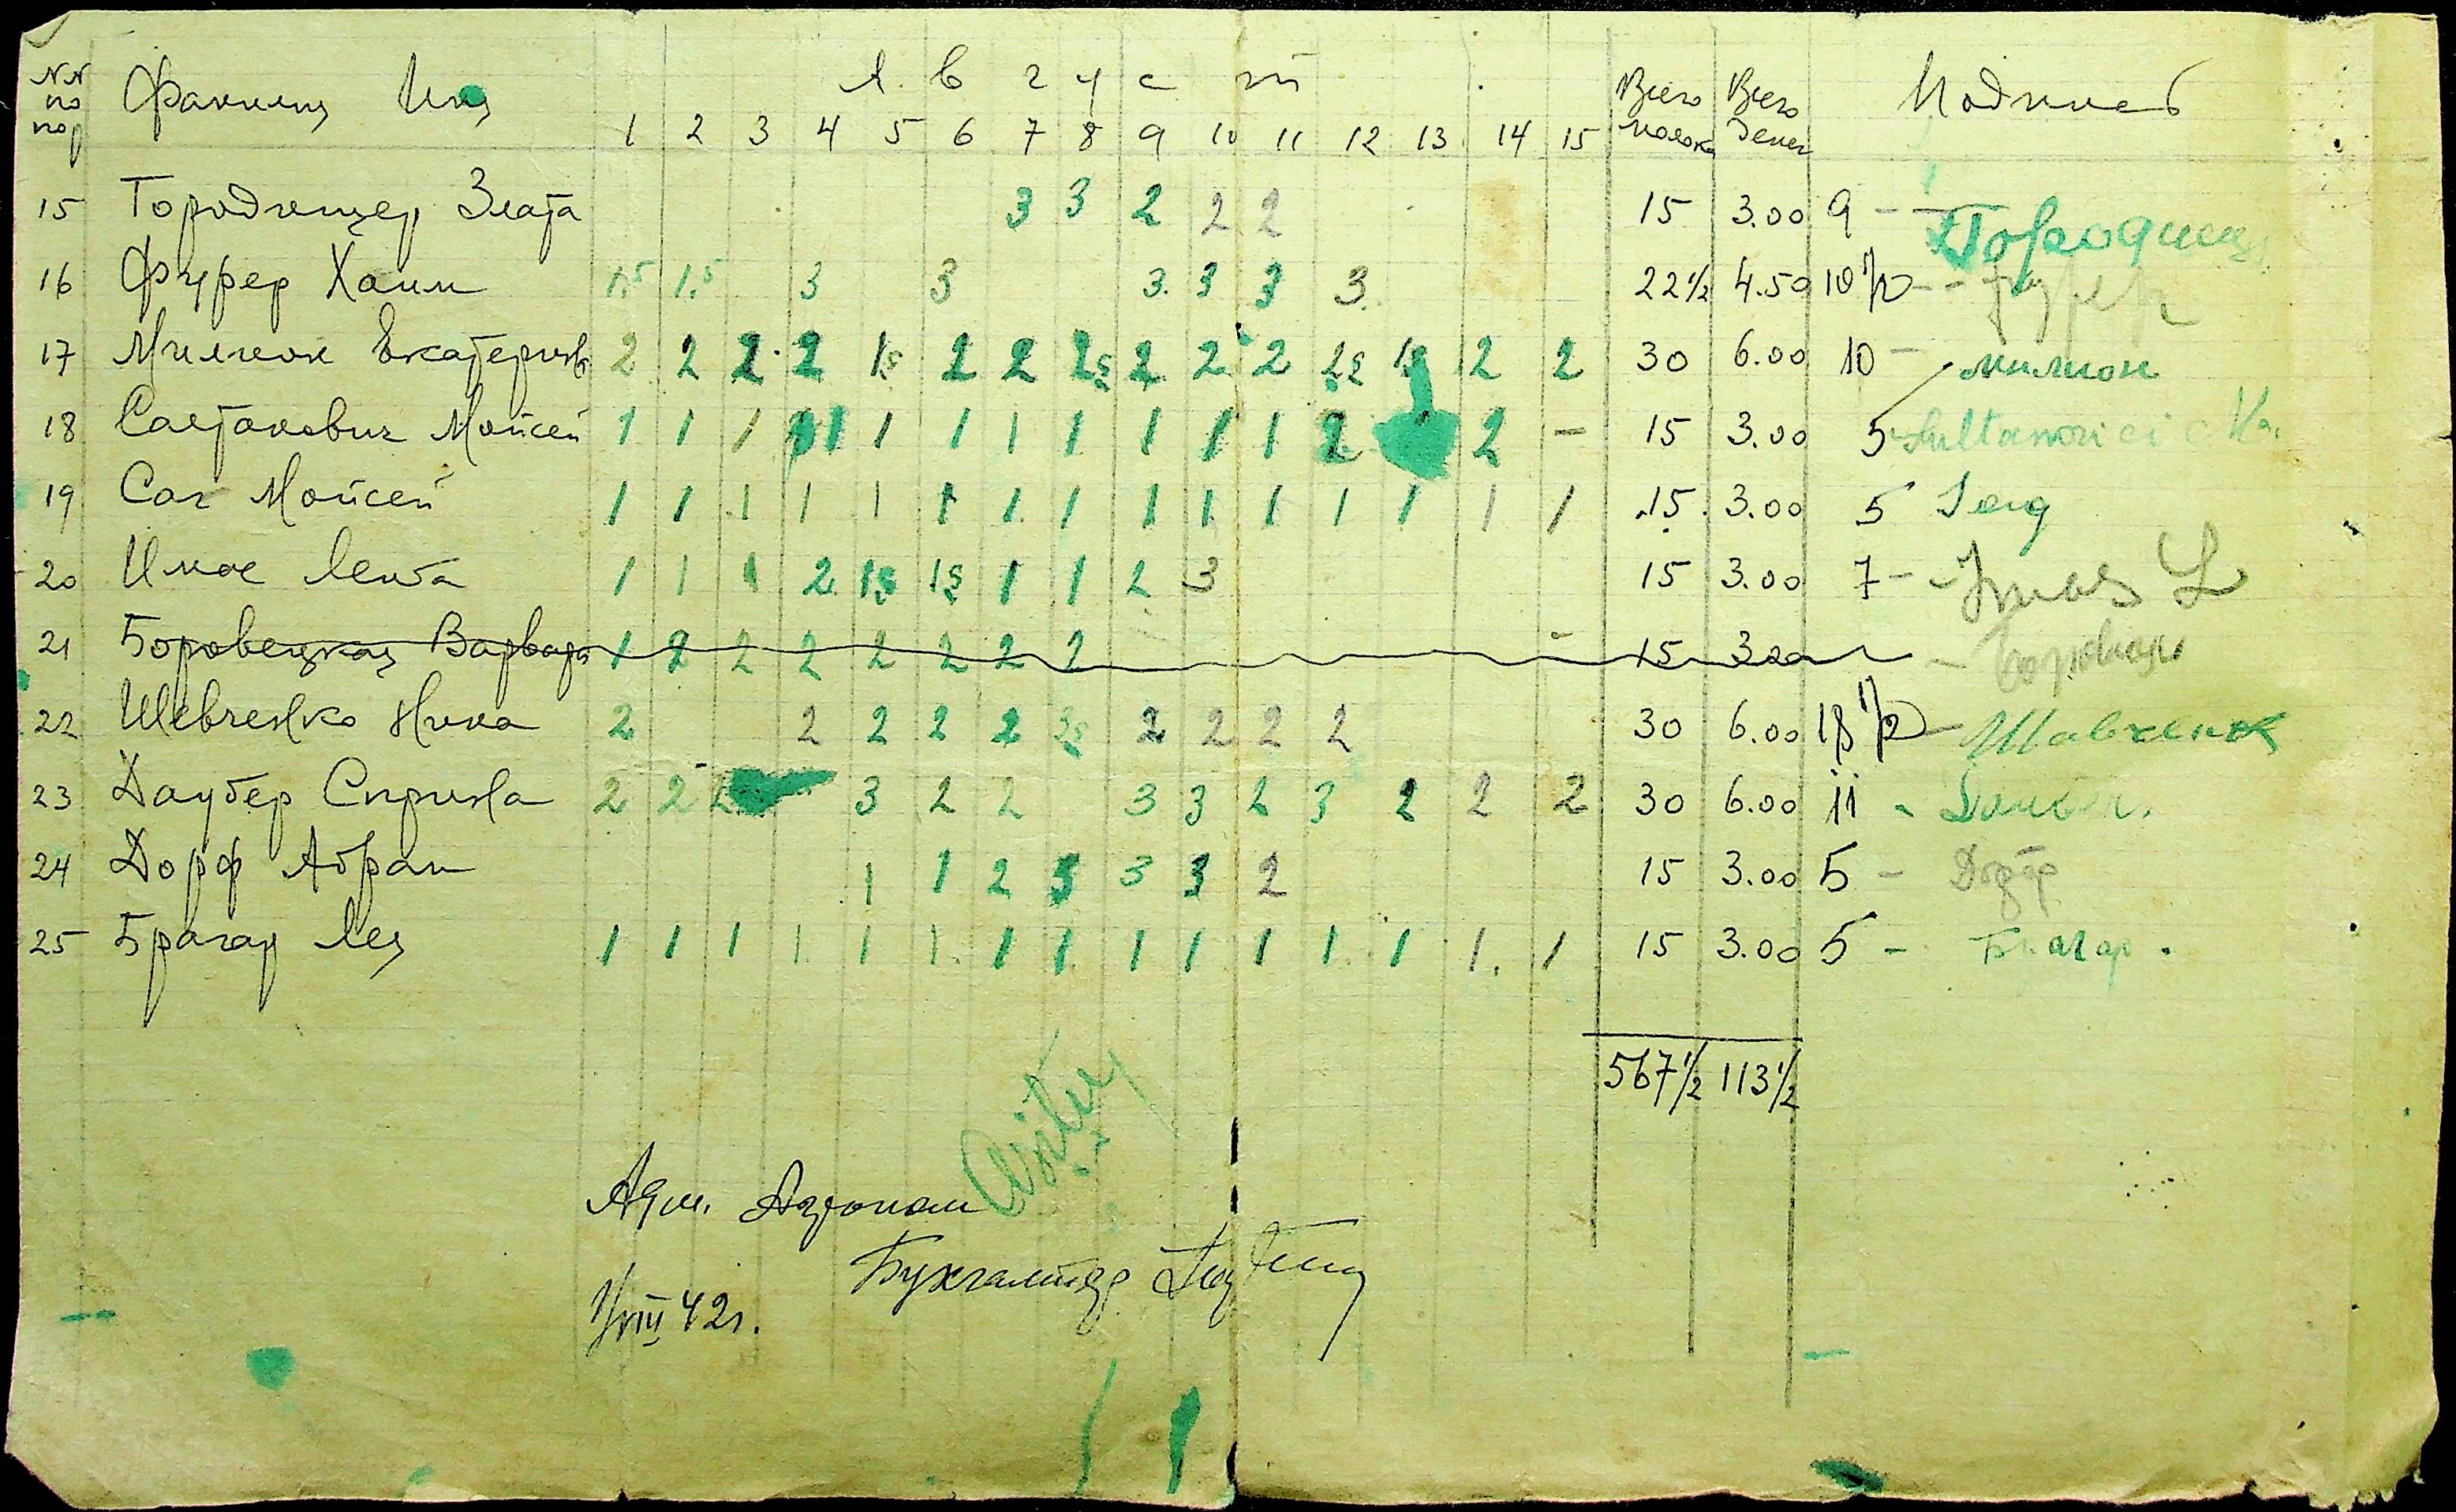 NN по пор Фамилия Имя Август Всего молока Всего денег Подпись
1 2 3 4 5 6 7 8 9 10 11 12 13 14 15
15 Городищер Злата 3 3 2 2 2 15 3.00 9 -
16 Фурер Хаим 1,5 1,5 3 3 3. 3 3 3. 22½ 4.50 10½ - - Фурер
17 Милион Екатерина 2 2 2 2 15 2 2 25 2 2 2 25 15 2 2 30 6.00 10 - милион
18 Салтанович Мойсей 1 1 1 1 1 1 1 1 1 1 1 2 2 - 15 3.00 5 Sultanovici
19 Саг Мойсей 1 1 1 1 1 1 1 1 1 1 1 1 1 1 1 15 3.00 5
20 Имас Лейба 1 1 1 2 15 15 1 1 2 3 15 3.00 7 - Imas L
21 Боровецкая Варвара 1 2 2 2 2 2 2 2 15 3.00
22 Шевченко Нина 2 2 2 2 2 25 2 2 2 2 30 6.00 Шевченк
23 Даубер Сприна 2 2 2 3 2 2 3 3 2 3 2 2 2 30 6.00 11 -
24 Дорф Абрам 1 1 2 3 3 3 2 15 3.00 5 -
25 Брагар Лея 1 1 1 1 1 1 1 1 1 1 1 1 1 1 1 15 3.00 5 - Брагар.
567½ 113½
Адм. Агроном
Бухгалтер
VIII 42г.